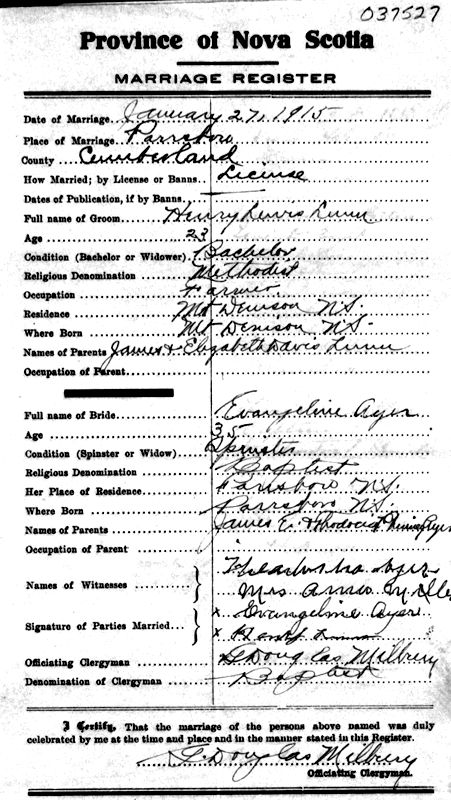 037527
Province of Nova Scotia
MARRIAGE REGISTER
Date of Marriage January 27, 1915
Place of Marriage Parrsboro
County Cumberland
How Married; by License or Banns License
Dates of Publication, if by Banns
Full name of Groom Henry Lewis Lunn
Age 23
Condition (Bachelor or Widower) Bachelor
Religious Denomination Methodist
Occupation Farmer
Residence Mt Denison N.S.
Where Born Mt Denison N.S.
Names of Parents James & Elizabeth Davis Lunn
Occupation of Parent
Full name of Bride Evangeline Ayer
Age 35
Condition (Spinster or Widow) Spinster
Religious Denomination Baptist
Her Place of Residence Parrsboro N.S.
Where Born Parrsboro N.S.
Names of Parents James E. & Ayer
Occupation of Parent
Names of Witnesses Ayer
Mrs
Signature of Parties Married x Evangeline Ayer
x Henry Lunn
Officiating Clergyman Douglas Milbury
Denomination of Clergyman Baptist
I Certify, That the marriage of the persons above named was duly
celebrated by me at the time and place and in the manner stated in this Register.
Douglas Milbury
Officiating Clergyman.